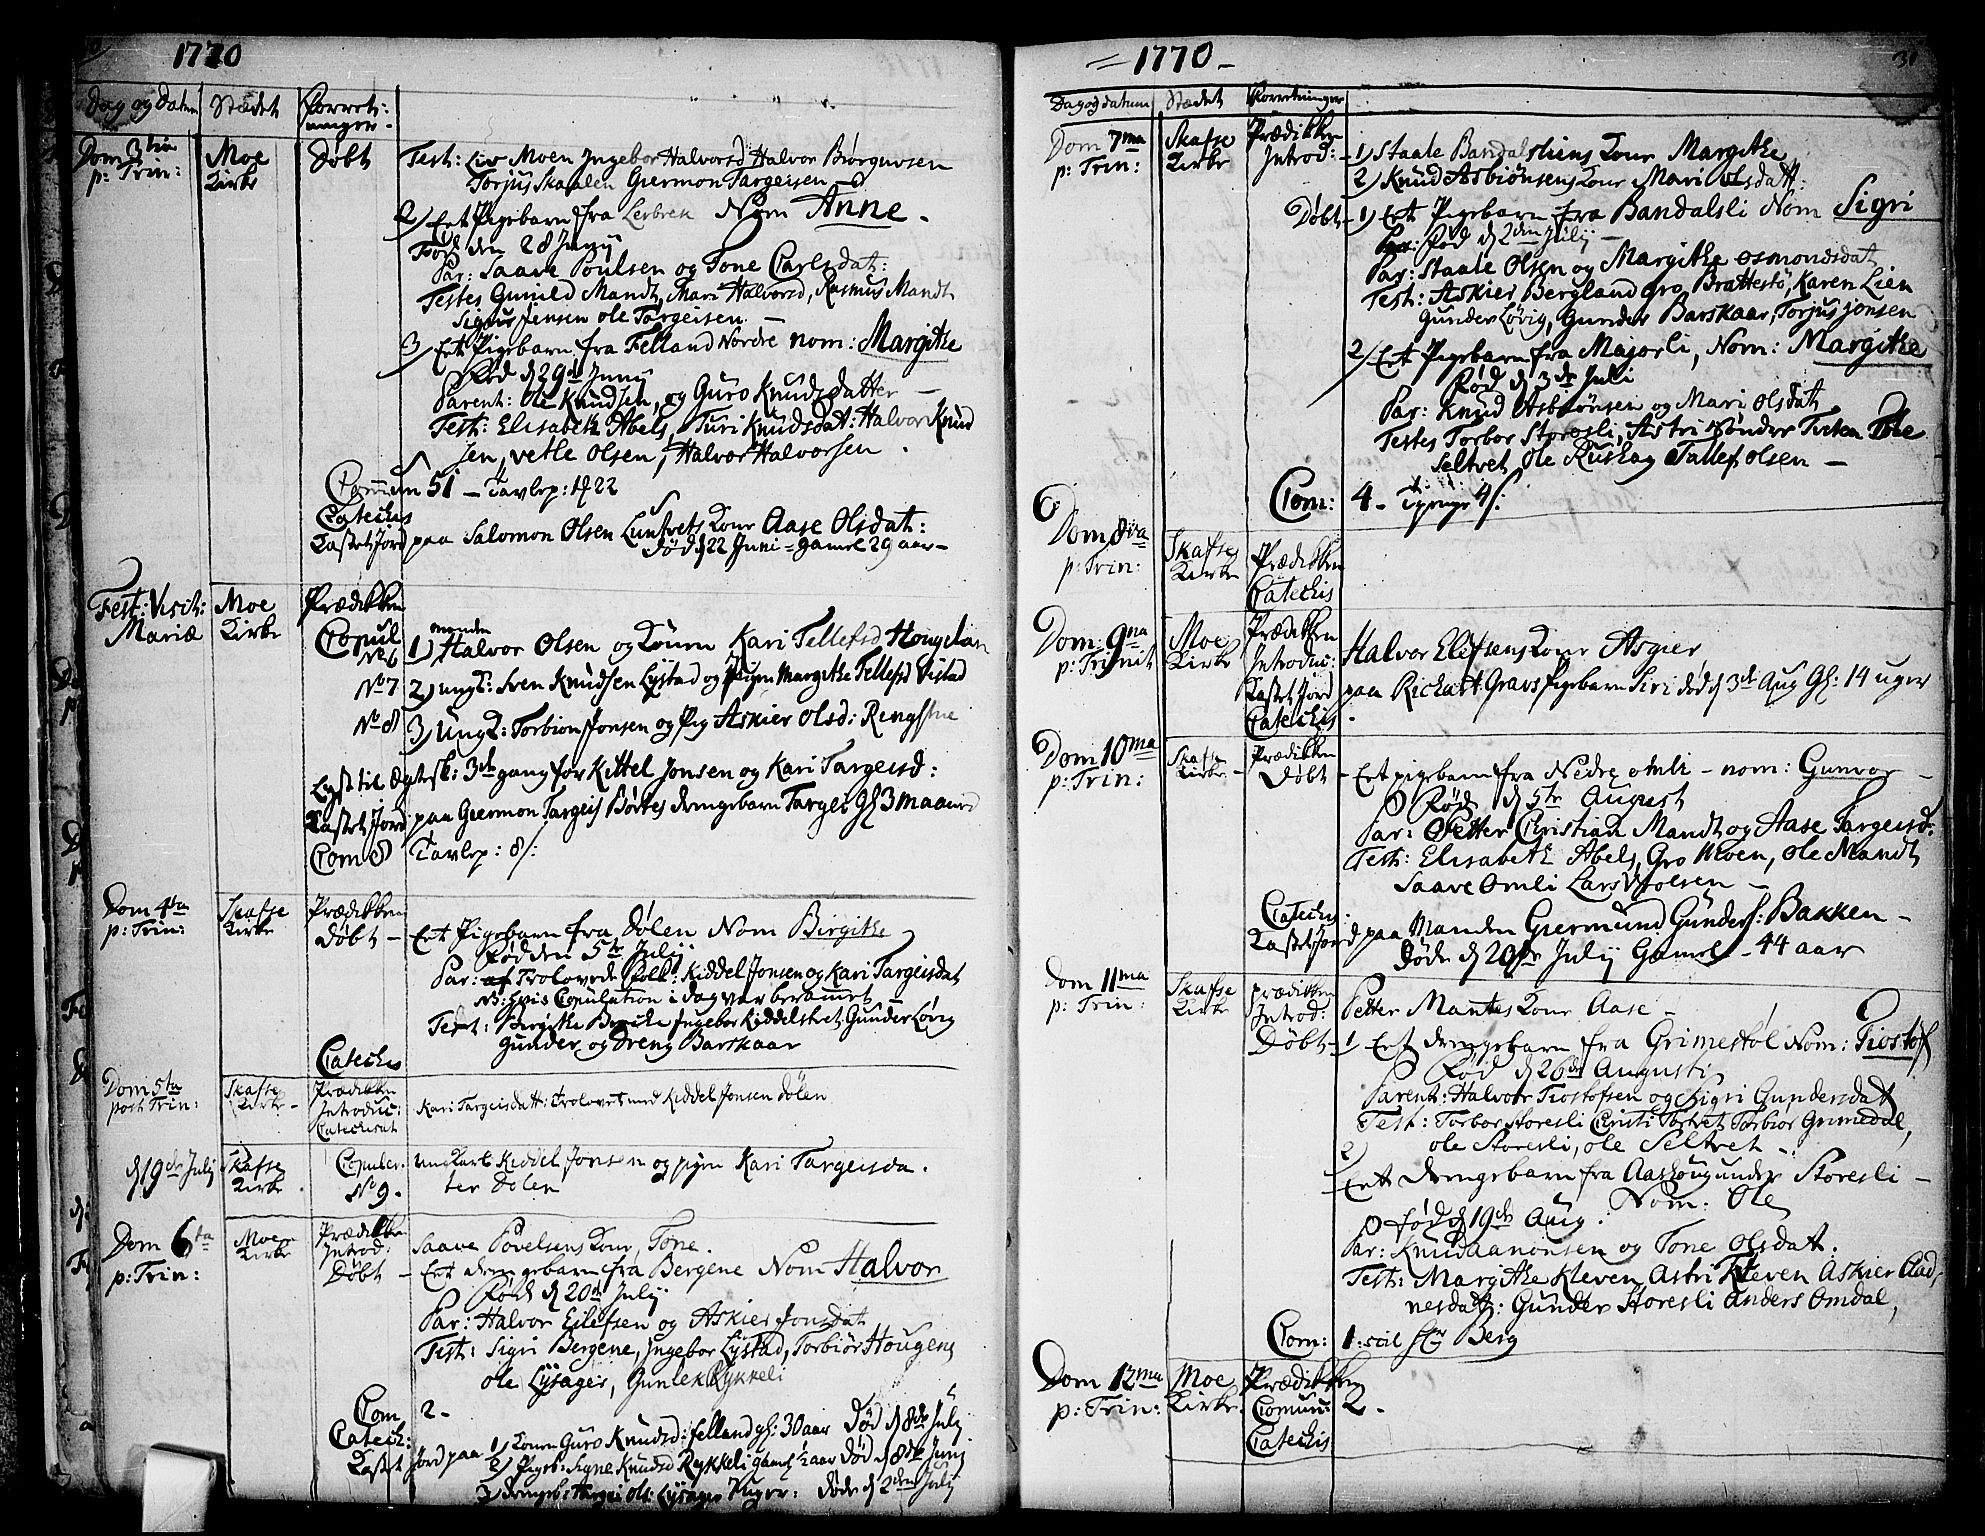 1770
Dag og Datum Stædet Forret:
ninger.
Dom 3tia Moe Døbt Test: Liv Moen Ingebor Halvorsd Halvor Biørguvsen
p: Trin: Kirke Torjus Skaalen Giermon Targeisen
2) Eet Pigebarn fra Nom Anne.
Fød den 28 Junij
Par: Saave Poulsen og Tone Carlsdat:
Testes Gunild Mandt, Mari Halvorsd, Rasmus Mandt
Jensen ole Targeisen.
3) Eet Pigebarn fra Felland Nordre nom: Margithe
Fød d 29de Junij
Parent: Ole Knudsen, og Guro Knudsdatter
Test: Elisabeth Abels, Turi Knudsdat: Halvor Knud
sen, vetle Olsen, Halvor Halvorsen.
Commun 51 - Tavlep: 1722
Catechis
Kastet Jord paa Salomon Olsen Luntvets Kone Aase Olsdat:
død d 22 Juni - gamel 29 aar -
Fest: Visit: Moe Prædikken
Mariæ Kirke Copul
No 6 1) manden Halvor Olsen og Konen Kari Tellefsd
No 7 2) ungk: Sven Knudsen Lystad og Pigen Margithe Tellefsd Vistad
No 8 3) ungk: Torbion Jonsen og Pig Askier Olsd:
Lyst til Ægtesk: 3de gang for Kittel Jonsen og Kari Targeisd:
Kastet Jord paa Giermon Targeis Børtes drengebarn Targei Gl 3 maaned
Com 8 Tavlep: 8/:
Dom 4ta Skafse Prædikken
p: Trin: Kirke Døbt - Eet Pigebarn fra Dølen Nom Birgithe
Fød den 5te Julij
Par: af Trolovede Folk: Kiddel Jonsen og Kari Targeisdat
NB: hvis Copulation i dag var berammet
Test: Birgithe Ingebor Kiddelstvet, Gunder Løvig
Gunder og Dreng Barskaar
Catechis
Dom 5ta Skafse Prædikken
post Trin: Kirke - Introduc: Kari Targeisdatt: trolovet med Kiddel Jonsen Dølen
Catechisat
d 19de Julij Skafse Copuler: ungkarl Kiddel Jonsen og pigen Kari Targeisda.
Kirke No 9. ter Dolen
Dom 6ta Moe Prædikken
p: Trin: Kirke Introd: Saave Povelsens Kone, Tone.
Døbt - Eet drengebarn fra Bergene Nom Halvor
Fød d 20de Julij
Par: Halvor Eilefsen og Askier Jonsdat
Test: Sigri Bergene, Ingebor Lystad, Torbiør Hougen
ole Lysager, Gunlek Rykkeli
Com 2 -
Catech:
Kastet Jord paa 1) Konen Guro Knudsd: Felland gl: 30 aar Død d 8de Julij
2) Pigeb: Signe Knudsd Rykkeli gamel ½ aar død d 8de Junij
3) drengeb: Targei Ols: Lysager 7 uger: døde d 2den Julij
= 1770 - 31
Dag og datum Stædet Forretninger
Dom 7ma Skafse Prædikken
p: Trin: Kirke Introd: - 1) Staale Bandalsliens Kone Margithe
2) Knud Asbiønsens Kone Mari olsdatt:
Døbt - 1) Eet Pigebarn fra Bandalsli Nom Sigri
Fød d 2den Julij -
Par: Staale Olsen og Margithe osmondsdat
Test: Askier Bergland Gro Brattestö, Karen Lien
Gunder Løvig, Gunder Barskaar, Torjus Jonsen
2) Eet Pigebarn fra Majorli, Nom: Margithe
Fød d 3de Juli
Par: Knud Asbiønsen og Mari olsdat
Testes Torbor Storesli, Astri
Seltvet, Ole Ruskag Tallef olsen -
Com: 4 - Tpenge 4/:
Dom 8va Skafse Prædikken
p: Trin: Kirke Catechis
Dom: 9na Moe Prædikken
p: Trinit Kirke Introduc: Halvor Elifsens Kone Asgier
Kastet Jord paa Richart Gravs Pigebarn Siri død d 3de Aug Gl: 14 uger
Catechis.
Dom 10ma Skafse Prædikken
p: Trin: Kirke - Døbt - Eet pigebarn fra Nedre omli - nom: Gunvor -
Fød d 5te August
Par: Petter Christian Mandt og Aase Targeisd:
Test: Elisabeth Abels, Gro Moen, Ole Mandt
Saave Omli Lars -
Catechis.
Kastet Jord paa Manden Giermund Gunders: Bakken -
Døde d 20de Julij Gamel - 44 aar
Dom 11ma Skafse prædikken
p: Trin: Kirke Introd: Petter Mantes Kone Aase -
Døbt - 1 Eet drengebarn fra Grimestöl Nom: Tiostof
Fød d 26de Augusti
Parent: Halvor Tiostofsen og Sigri Gundersdat
Test: Torbor Storesli Cristi Tortvet Torbior Grimedal,
ole Storesli, ole Seltvet -
2)
Eet drengebarn fra Aashoug under Storesli -
Nom: Ole
Fød d 19de Aug.
Par: Knud aanonsen og Tone olsdat.
Test: Margithe Kleven Astri Kleven Askier Aad,
nesdatt: Gunder Storesli Anders Omdal,
Com: 1: scil Berg
Dom 12ma Moe Prædikken
p: Trin: Kirke. Comun: 2.
Catechis